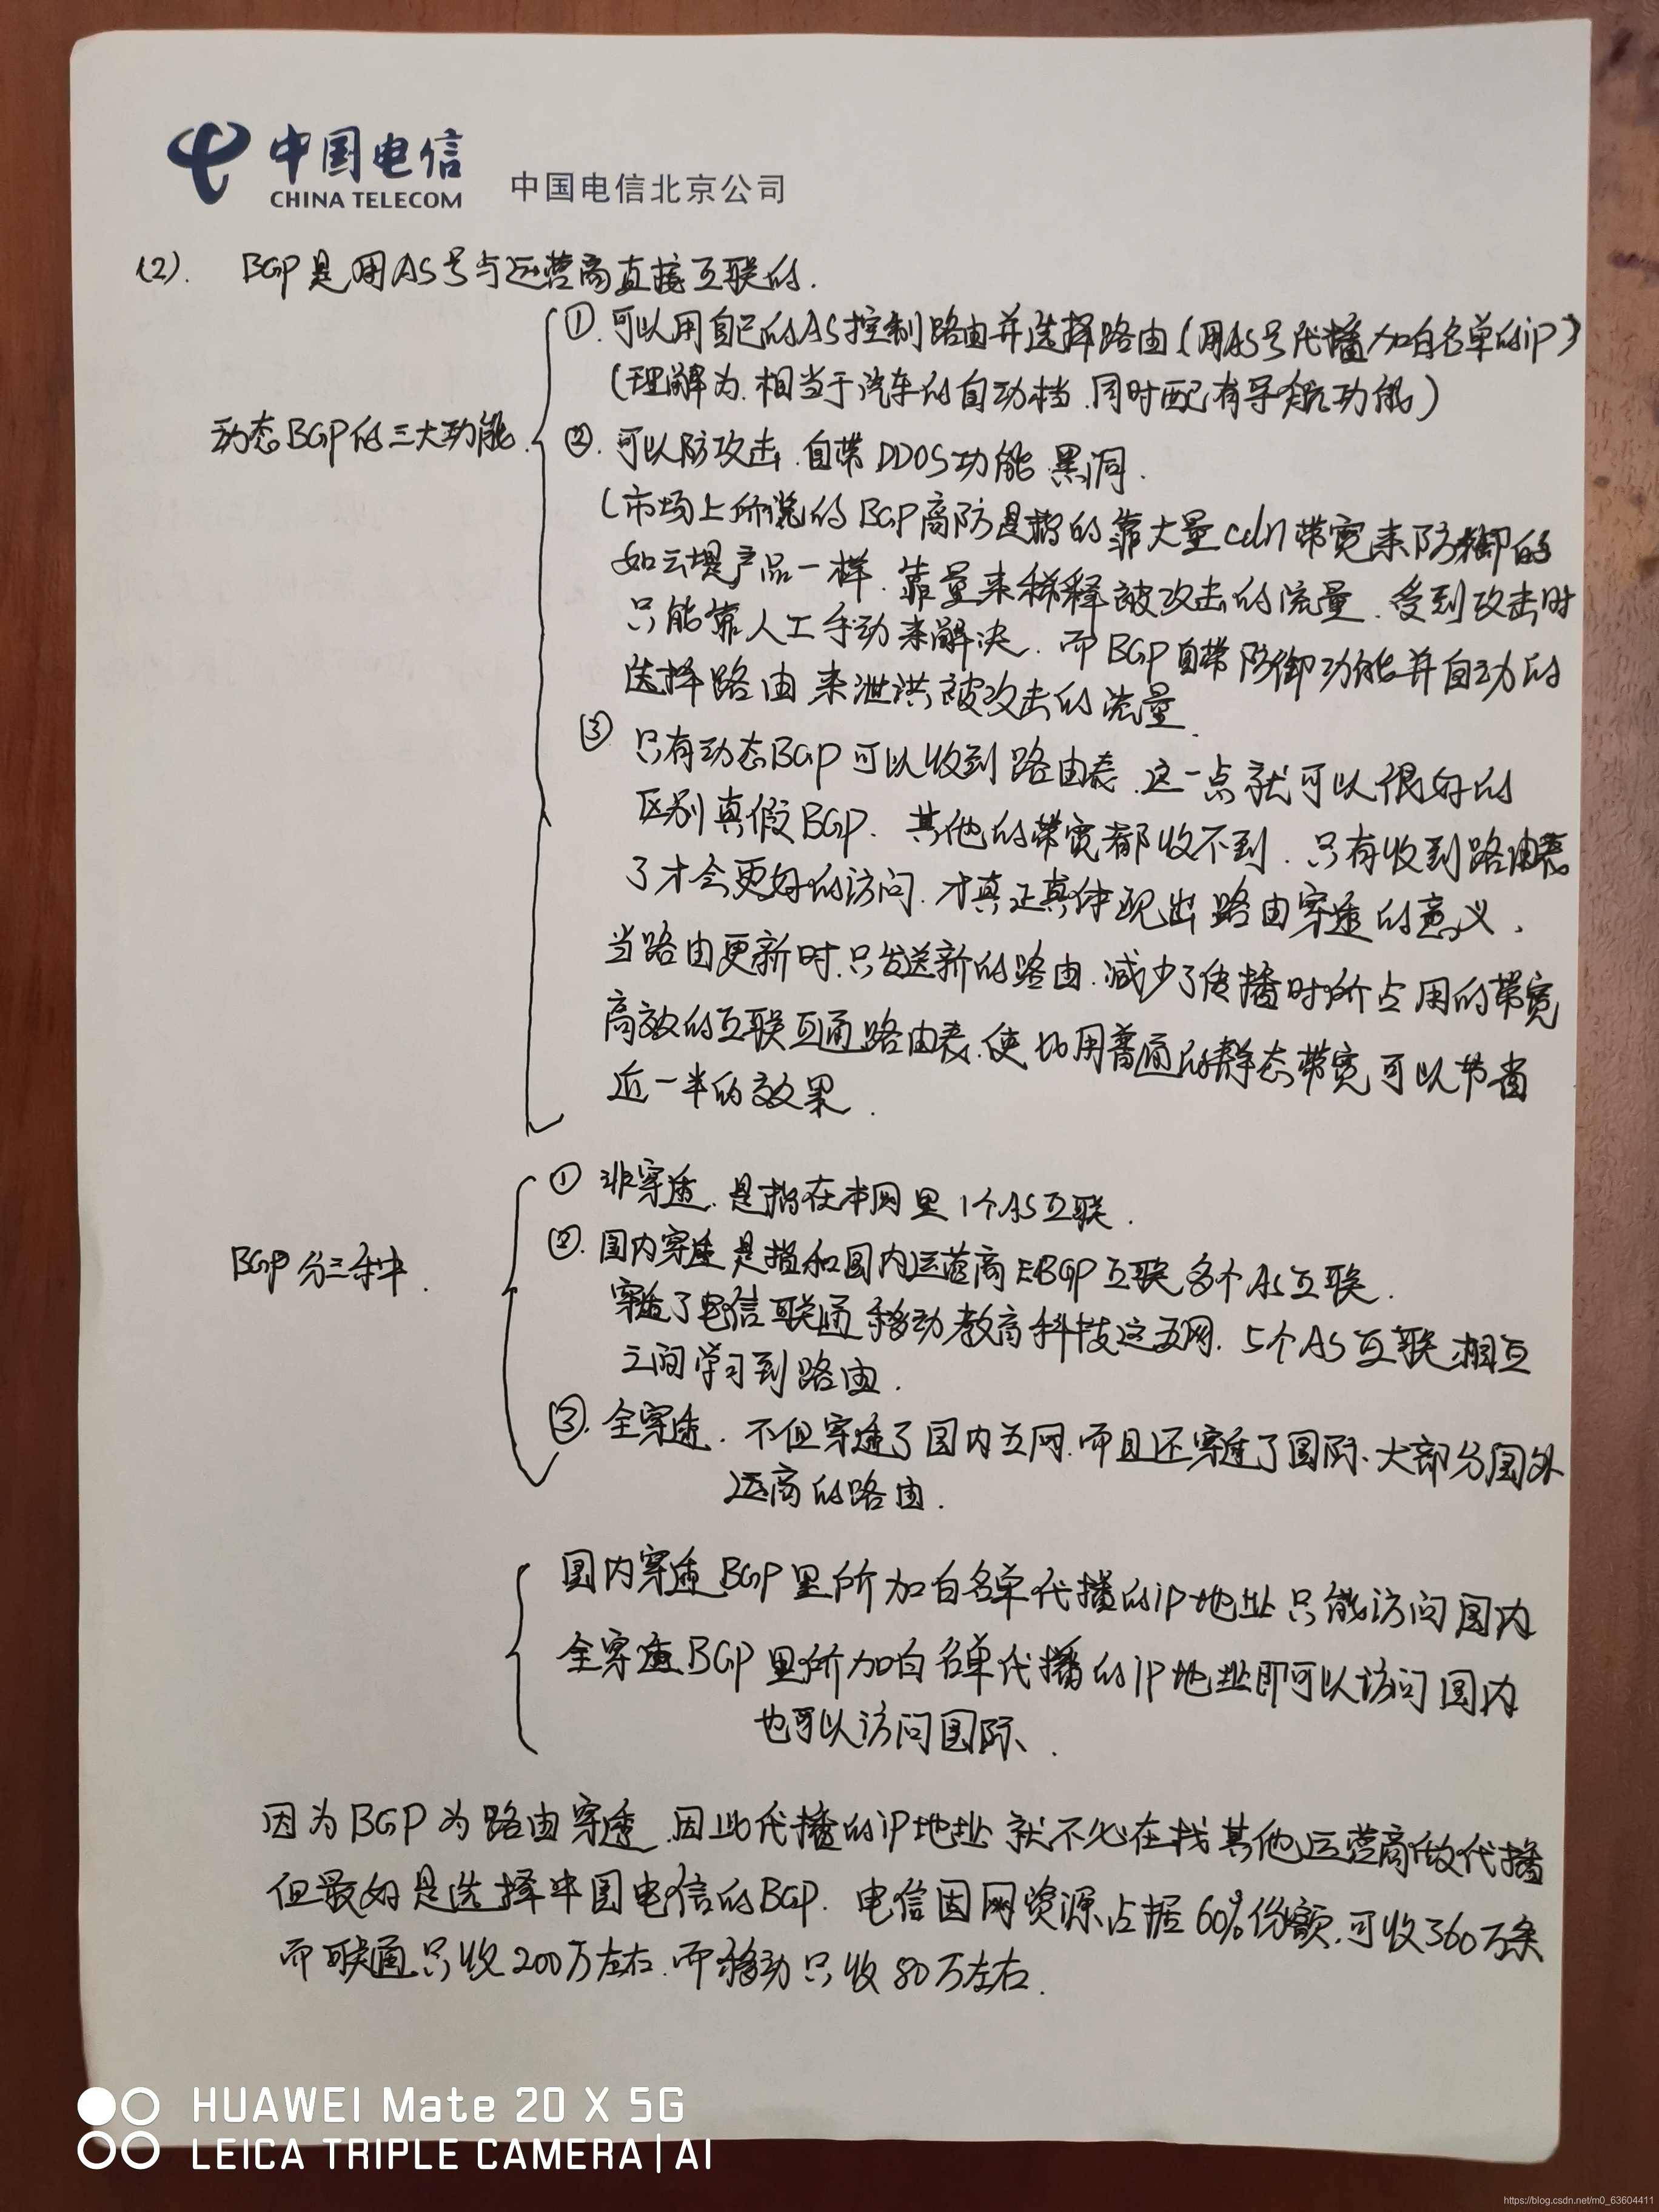 中国电信
CHINA TELECOM
中国电信北京公司
(2). BGP是用AS号与运营商直接互联的.
动态BGP的三大功能.
①.可以用自己的AS控制路由并选择路由(用AS号代播加白名单的iP)
(理解为.相当于汽车的自动档.同时配有导航功能)
②.可以防攻击.自带DDOS功能.黑洞.
(市场上所说的BGP高防是指的靠大量cdn带宽来防御的
如云堤产品一样.靠量来稀释被攻击的流量.受到攻击时
只能靠人工手动来解决.而BGP自带防御功能并自动的
选择路由来泄洪被攻击的流量.
③只有动态BGP可以收到路由表.这一点就可以很好的
区别真假BGP.其他的带宽都收不到.只有收到路由表
了才会更好的访问.才真正真体现出路由穿透的意义.
当路由更新时.只发送新的路由.减少了传播时所占用的带宽
高效的互联互通路由表.使比用普通的静态带宽可以节省
近一半的效果.
BGP分三种.
①非穿透.是指在本网里1个AS互联.
②.国内穿透是指和国内运营商EBGP互联多个AS互联.
穿透了电信联通移动教育科技这五网.5个AS互联相互
之间学习到路由.
③.全穿透.不但穿透了国内五网.而且还穿透了国际.大部分国外
运商的路由.
国内穿透BGP里所加白名单代播的iP地址只能访问国内
全穿透BGP里所加白名单代播的iP地址即可以访问国内
也可以访问国际.
因为BGP为路由穿透.因此代播的iP地址就不必在找其他运营商做代播
但最好是选择中国电信的BGP.电信因网资源占据60%份额.可收360万条
而联通只收200万左右.而移动只收80万左右.
HUAWEI Mate 20 X 5G
LEICA TRIPLE CAMERA | AI
https://blog.csdn.net/m0_63604411